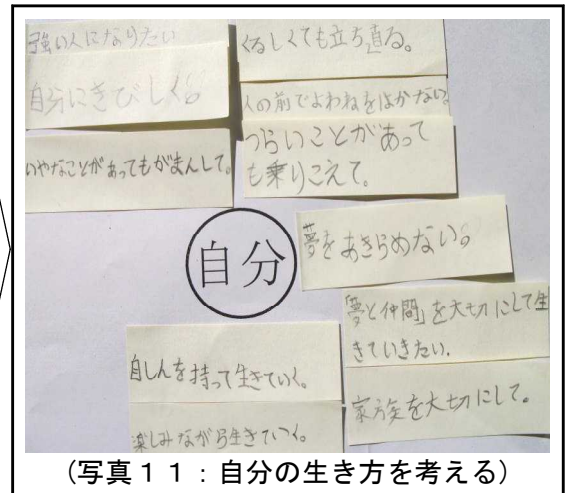 強い人になりたい
自分にきびしく。
いやなことがあってもがまんして。
くるしくても立ち直る。
人の前でよわねをはかない。
つらいことがあって
も乗りこえて。
自分
夢をあきらめない。
「夢と仲間」を大切にして生
きていきたい.
家族を大切にして。
自しんを持って生きていく。
楽しみながら生きていく。
(写真11:自分の生き方を考える)